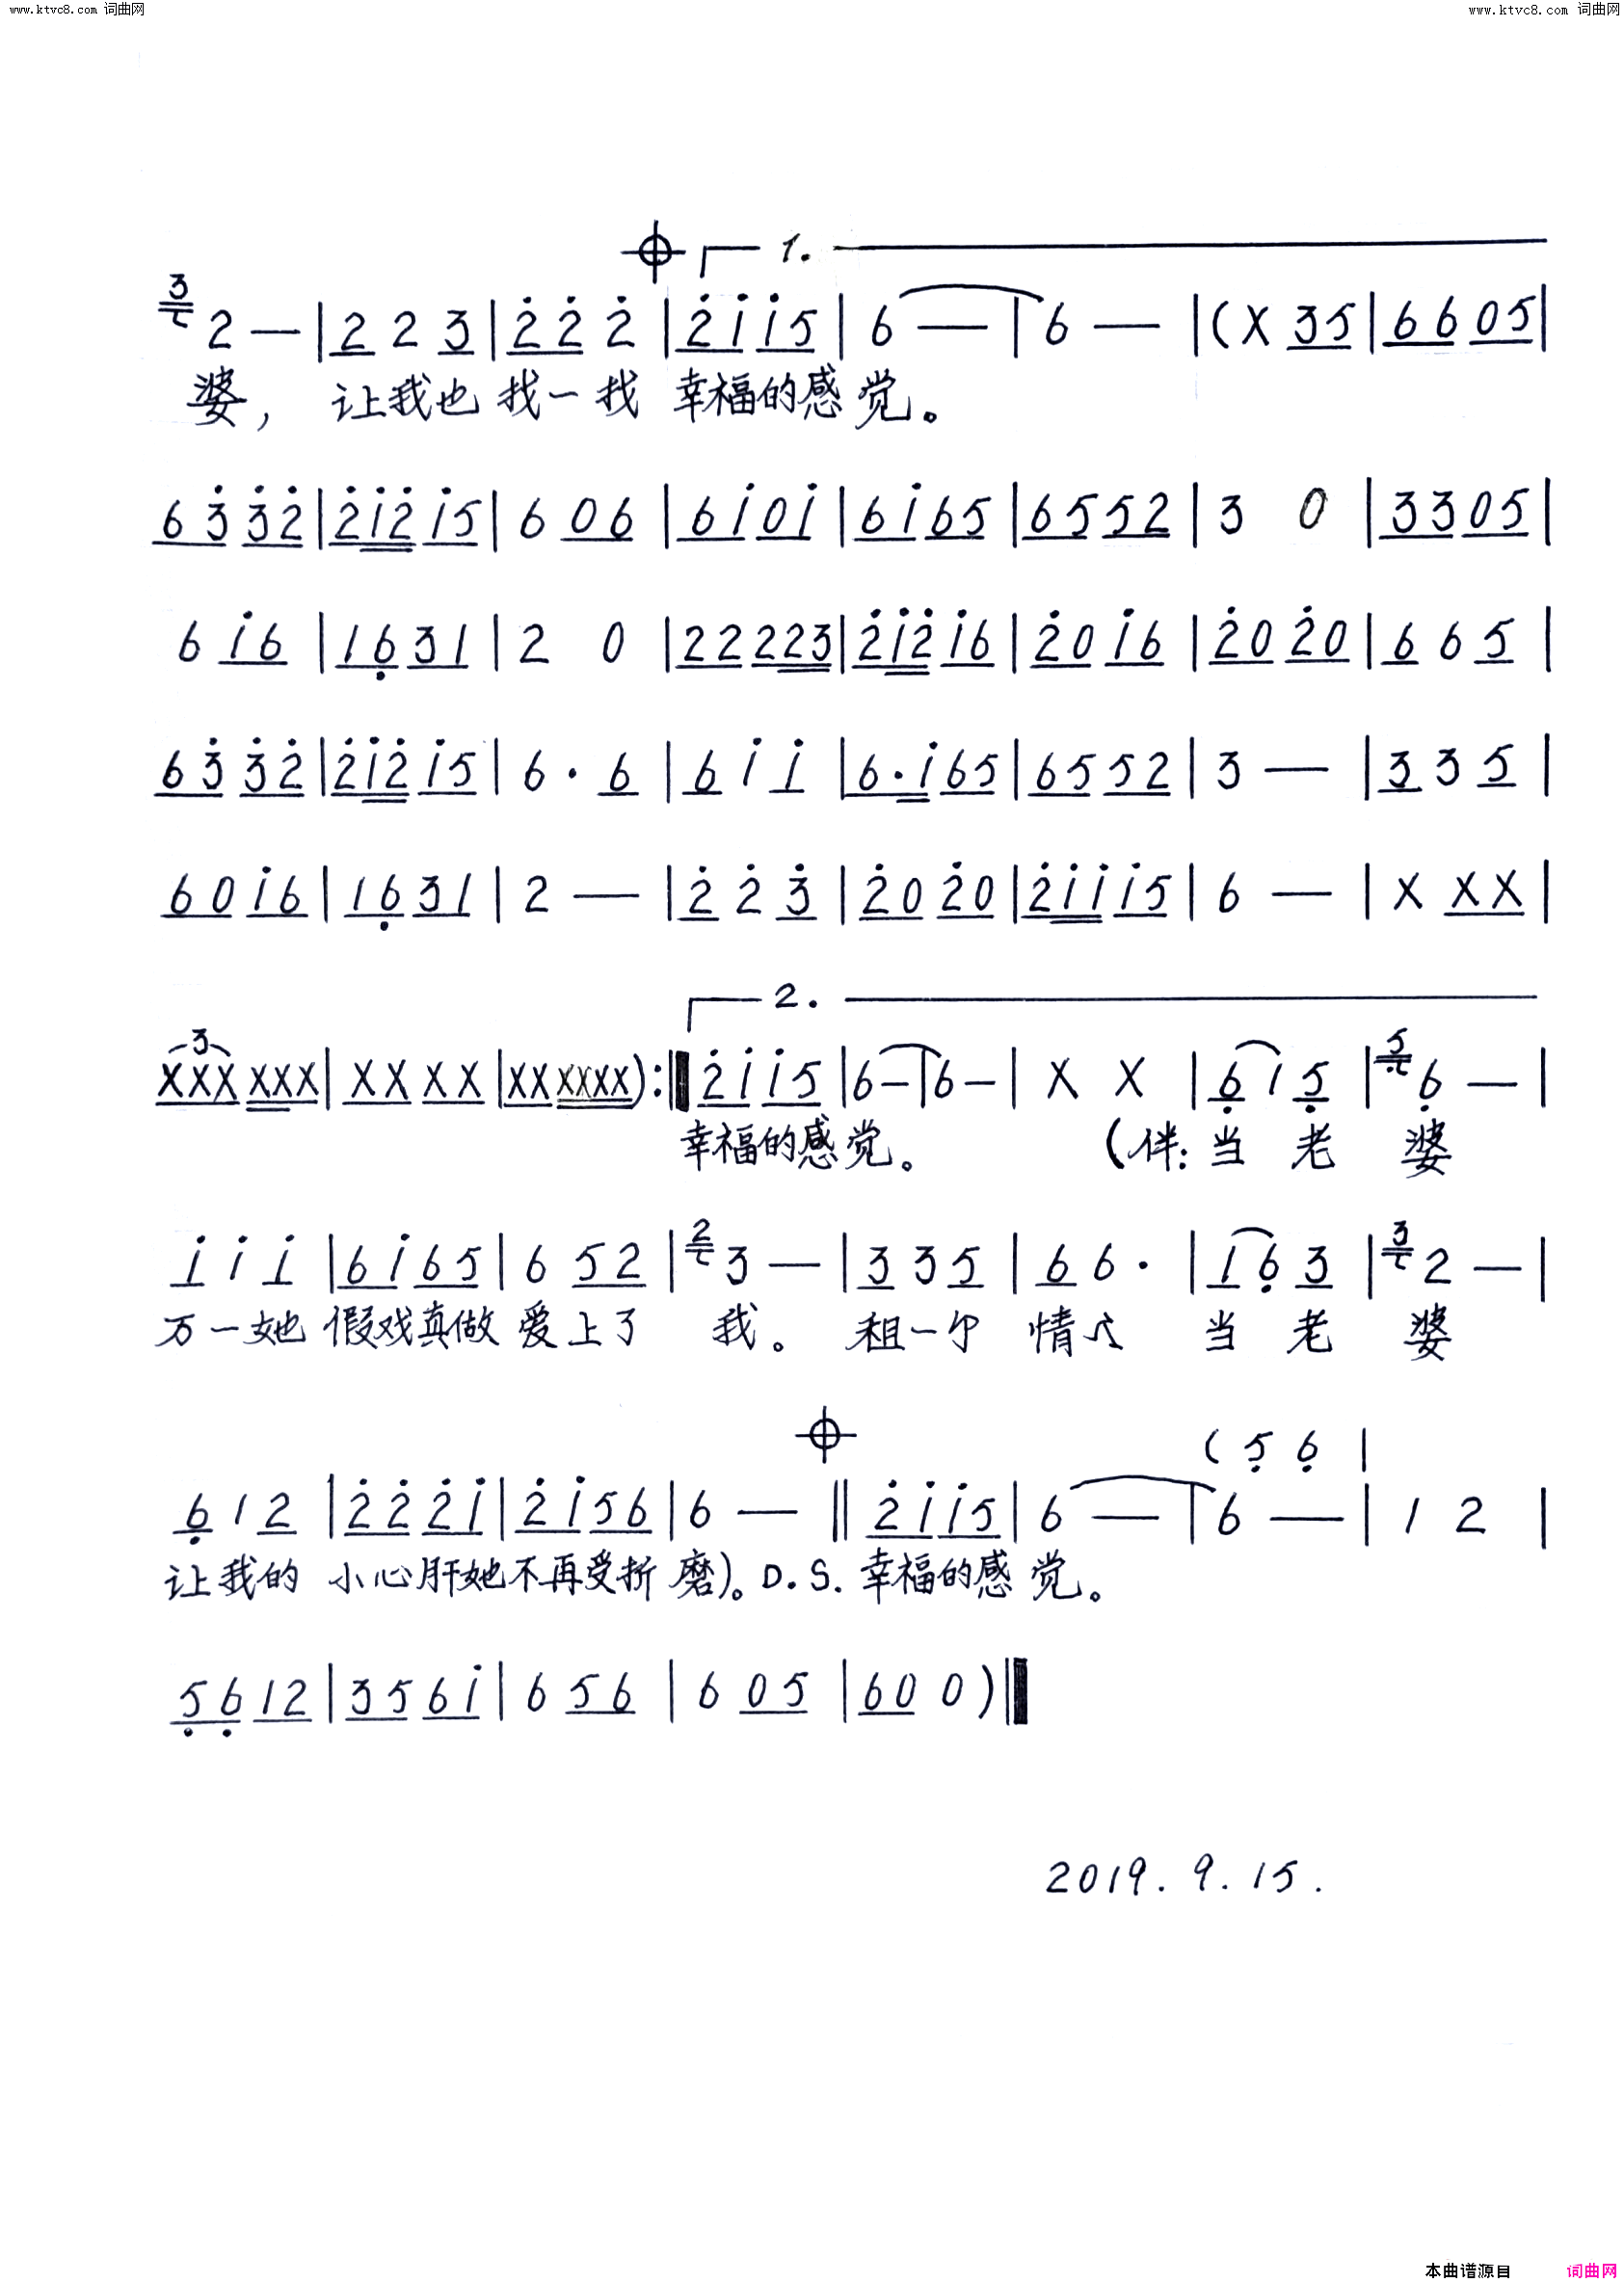 www.ktvc8.com 词曲网 www.ktvc8.com 词曲网
1.
3 2 — | 2 2 3 | 2̇ 2̇ 2̇ | 2̇ i i 5 | 6 — | 6 — | ( X 3 5 | 6 6 0 5 |
婆， 让我也 找一找 幸福的感觉。
6 3̇ 3̇ 2̇ | 2̇ i 2̇ i 5 | 6 0 6 | 6 i 0 i | 6 i 6 5 | 6 5 5 2 | 3 0 | 3 3 0 5 |
6 i 6 | 1 6̣ 3 1 | 2 0 | 2 2 2 2 3 | 2̇ i 2̇ i 6 | 2̇ 0 i 6 | 2̇ 0 2̇ 0 | 6 6 5 |
6 3̇ 3̇ 2̇ | 2̇ i 2̇ i 5 | 6 · 6 | 6 i i | 6 · i 6 5 | 6 5 5 2 | 3 — | 3 3 5 |
6 0 i 6 | 1 6̣ 3 1 | 2 — | 2̇ 2̇ 3̇ | 2̇ 0 2̇ 0 | 2̇ i i i 5 | 6 — | X X X |
2.
3
X X X X X X | X X X X | X X X X X X ) :‖ 2̇ i i 5 | 6 — | 6 — | X X | 6̣ 1 5̣ | 5̣ 6̣ — |
幸福的感觉。 (伴: 当 老 婆
i i i | 6 i 6 5 | 6 5 2 | 2 3 — | 3 3 5 | 6 6 · | 1 6̣ 3 | 3 2 — |
万一她 假戏真做 爱上了 我。 租一个 情人 当 老 婆
( 5̣ 6̣ |
6̣ 1 2 | 2̇ 2̇ 2̇ i | 2̇ i 5 6 | 6 — ‖ 2̇ i i 5 | 6 — | 6 — | 1 2 |
让我的 小心肝她不再受折磨)。D.S. 幸福的感觉。
5̣ 6̣ 1 2 | 3 5 6 i | 6 5 6 | 6 0 5 | 6 0 0 ) ‖
2019.9.15.
本曲谱源自 词曲网